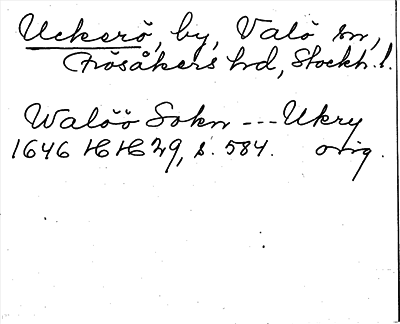 Uckerö, by, Valö sn,
Frösåkers hd, Stockh. l.
Walöö Sokn --- Ukry
1646 HH 29, s. 584. orig.